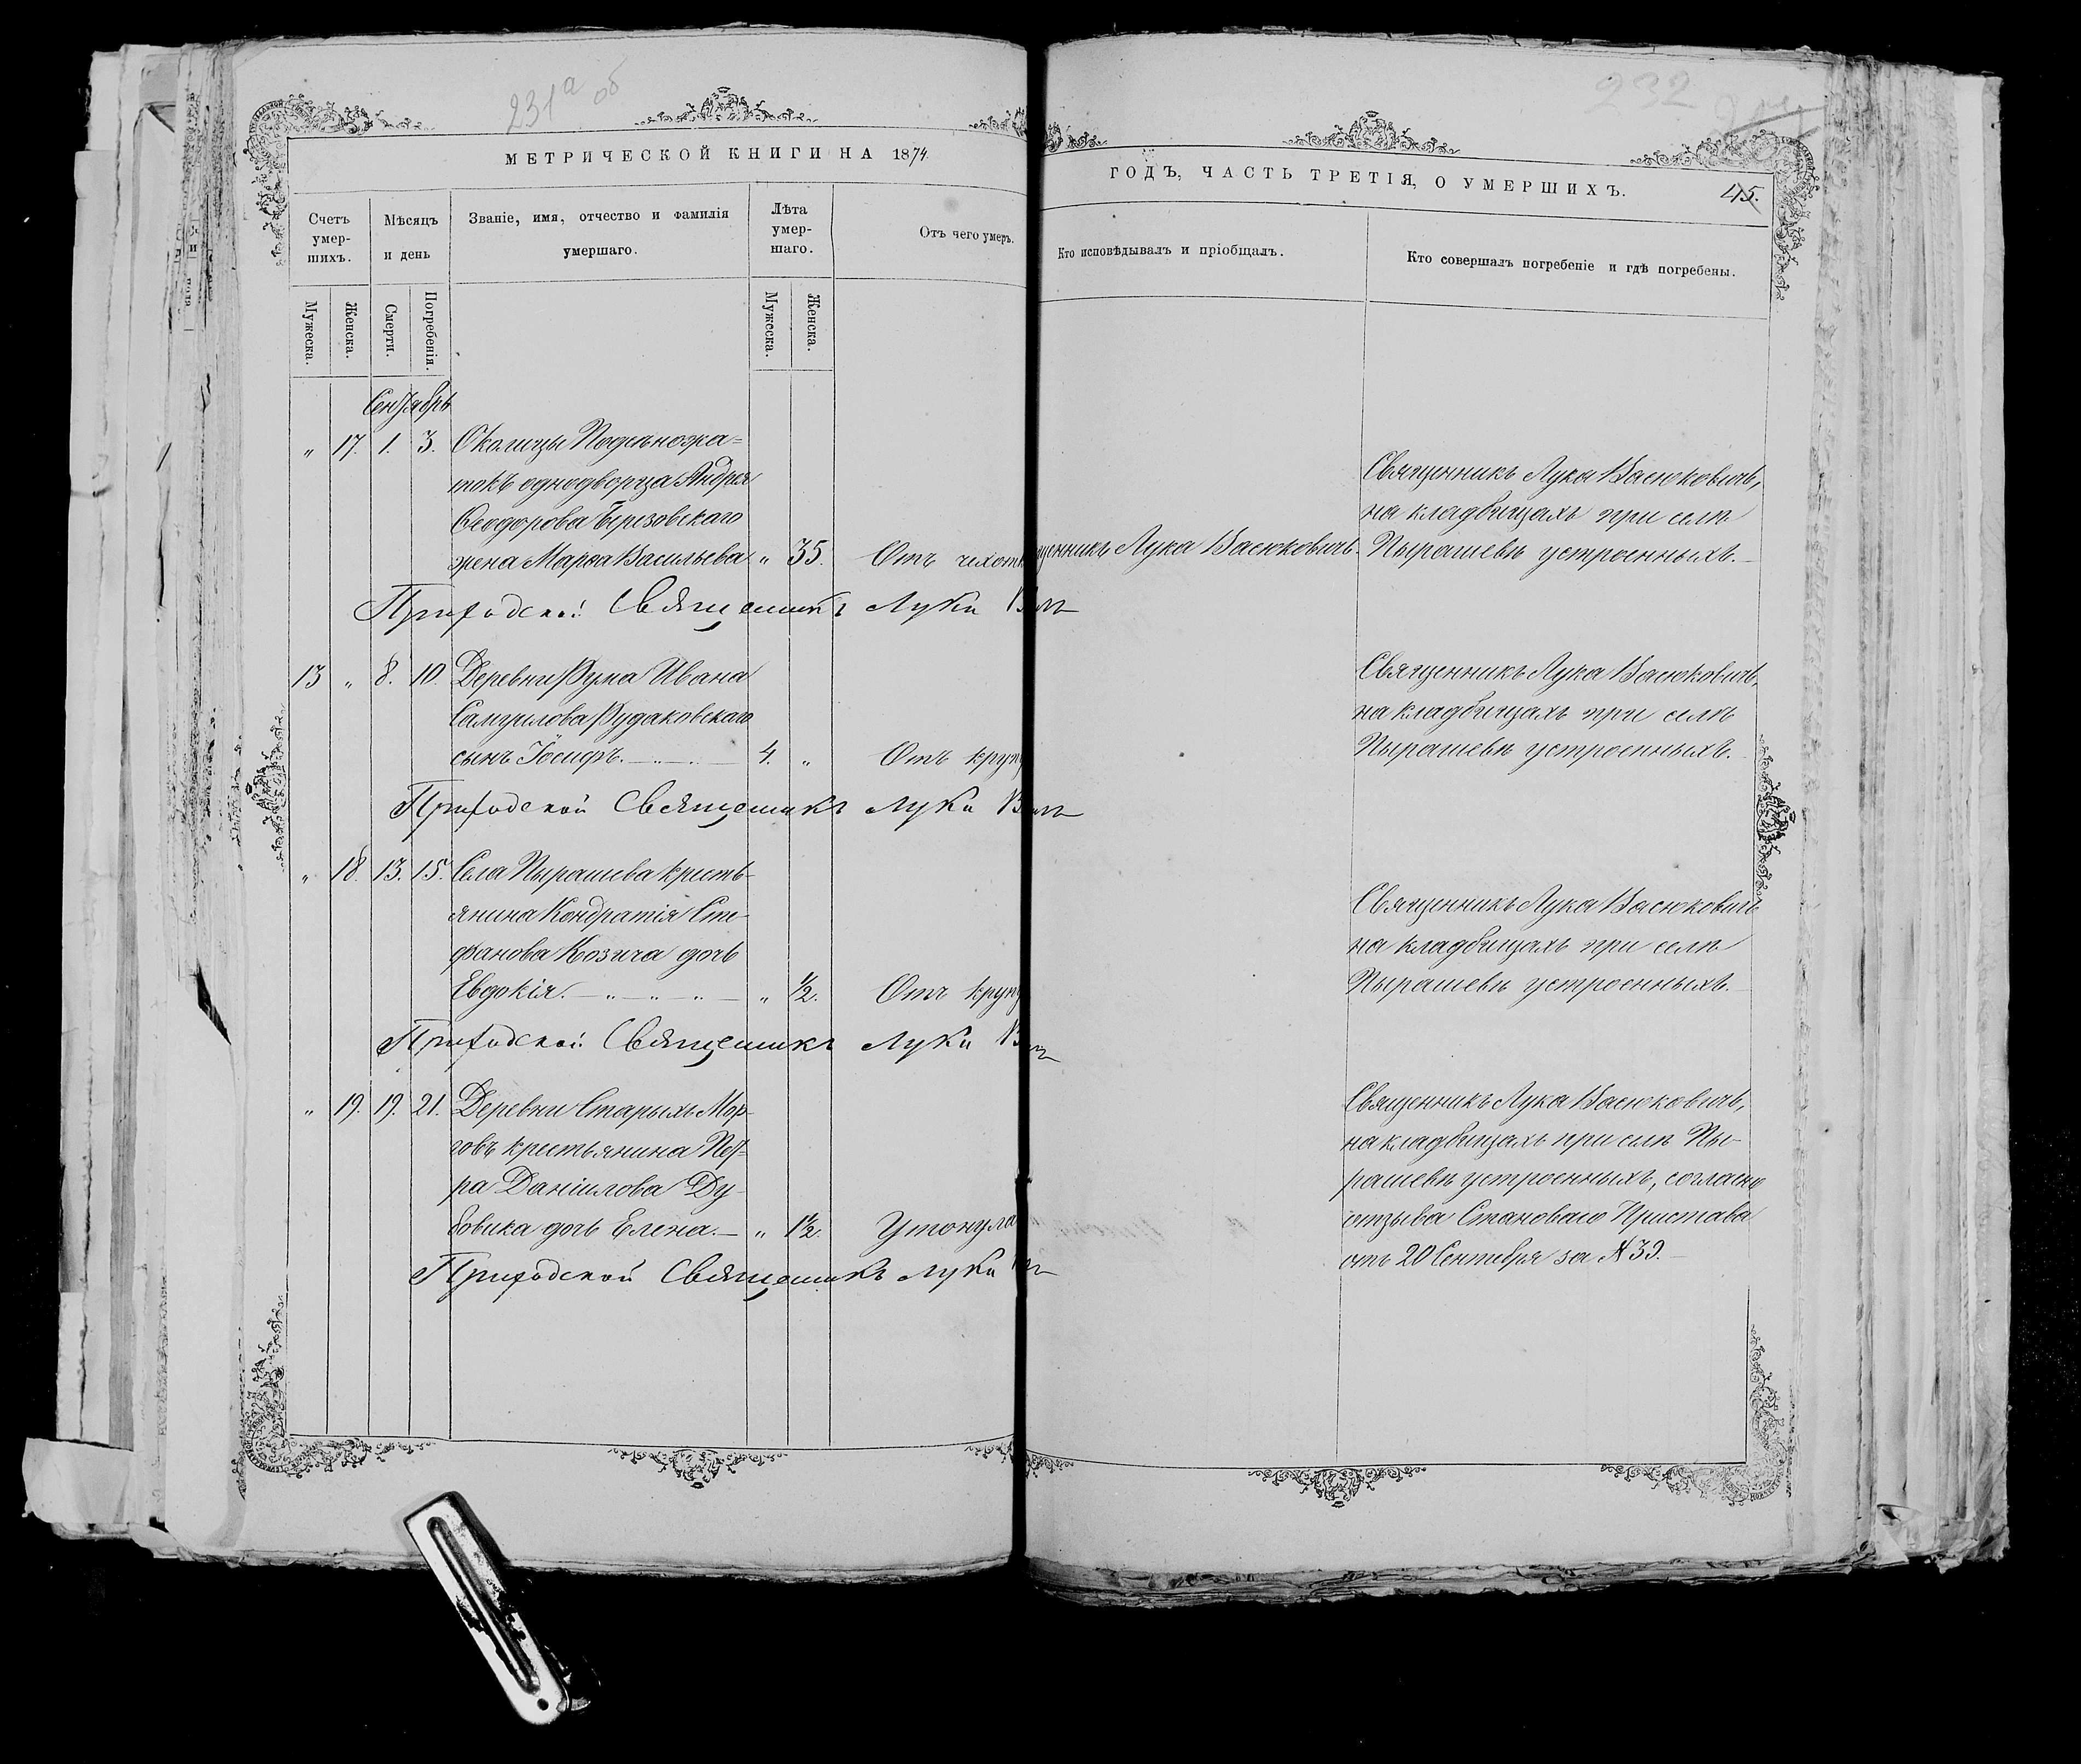 231а об
232
МЕТРИЧЕСКОЙ КНИГИ НА 1874
ГОДЪ, ЧАСТЬ ТРЕТІЯ, О УМЕРШИХЪ.
45.
Счетъ умер-шихъ.
Мѣсяцъ и день
Званіе, имя, отчество и фамилія умершаго.
Лѣта умер-шаго.
Отъ чего умеръ.
Кто исповѣдывалъ и пріобщалъ.
Кто совершалъ погребеніе и гдѣ погребены.
Мужеска.
Женска.
Смерти.
Погребенія.
Мужеска.
Женска.
Сентябрь
„ 17. 1. 3. Околицы
токъ однодворца Андрея
Ѳеодорова Березовскаго
жена Марѳа Васильева „ 35. Отъ чехот
щенникъ Лука Васюковичъ.
Священникъ Лука Васюковичъ,
на кладбищахъ при селѣ
Пырашевѣ устроенныхъ.
Приходской Священникъ Лука В
13 „ 8. 10. Деревни Рума Ивана
Самуилова Рудаковскаго
сынъ Іосифъ. 4. „ Отъ круп
Священникъ Лука Васюковичъ,
на кладбищахъ при селѣ
Пырашевѣ устроенныхъ.
Приходской Священникъ Лука В
„ 18. 13. 15. Села Пырашева кресть-
янина Кондратія Сте-
фанова Козича дочь
Евдокія. „ ½. Отъ круп
Священникъ Лука Васюковичъ
на кладбищахъ при селѣ
Пырашевѣ устроенныхъ.
Приходской Священникъ Лука В
„ 19. 19. 21. Деревни Старыхъ Мор-
говъ крестьянина Пет-
ра Даніилова Ду-
бовика дочь Елена. „ 1½. Утонула
Священникъ Лука Васюковичъ,
на кладбищахъ при селѣ Пы-
рашевѣ устроенныхъ, согласно
отзыва Становаго Пристава
отъ 20 Сентября за № 39.
Приходской Священникъ Лука